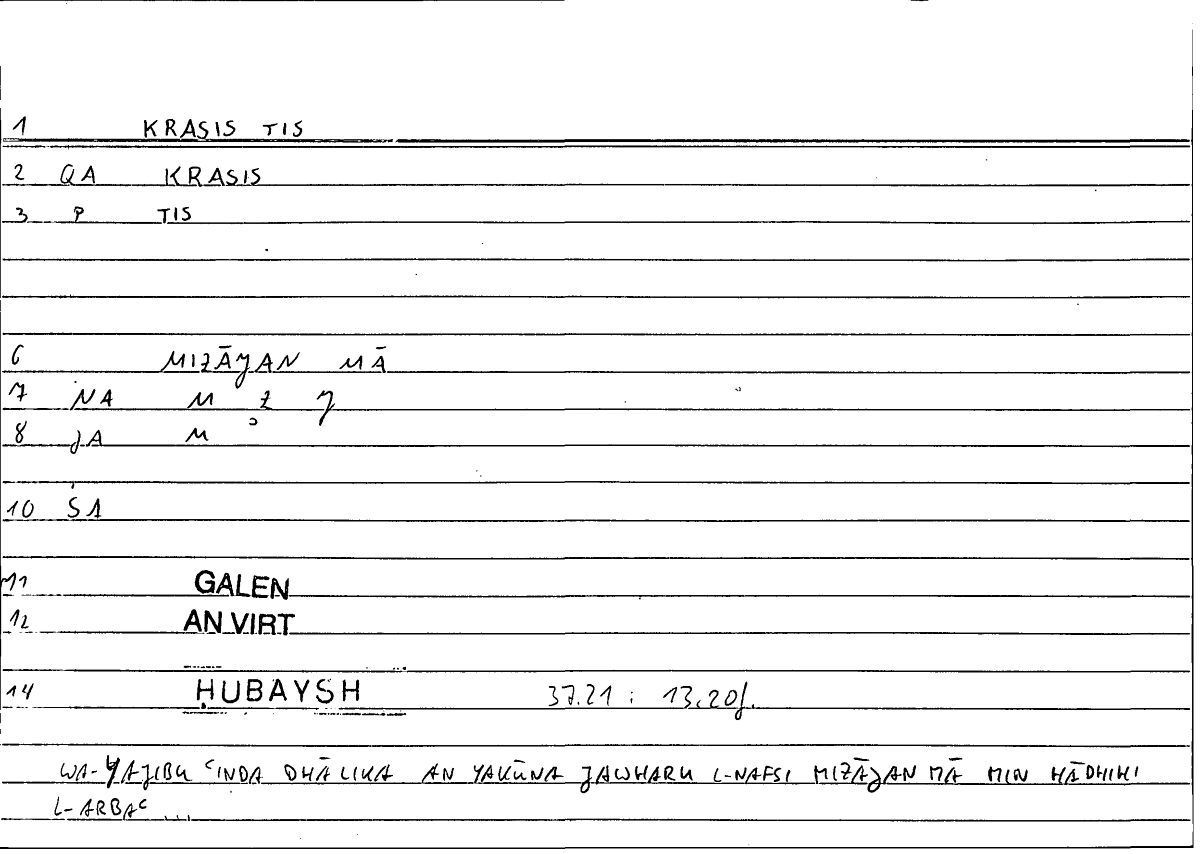 1 KRASIS TIS
2 QA KRASIS
3 P TIS
6 MIZĀJAN MĀ
7 NA M Z J
8 JA M
10 ŠA
11 GALEN
12 AN VIRT
14 ḤUBAYSH 37.21 : 13,20f.
WA-YAJIBU ʿINDA DHĀLIKA AN YAKŪNA JAWHARU L-NAFSI MIZĀJAN MĀ MIN HĀDHIHI
L-ARBAʿ ...